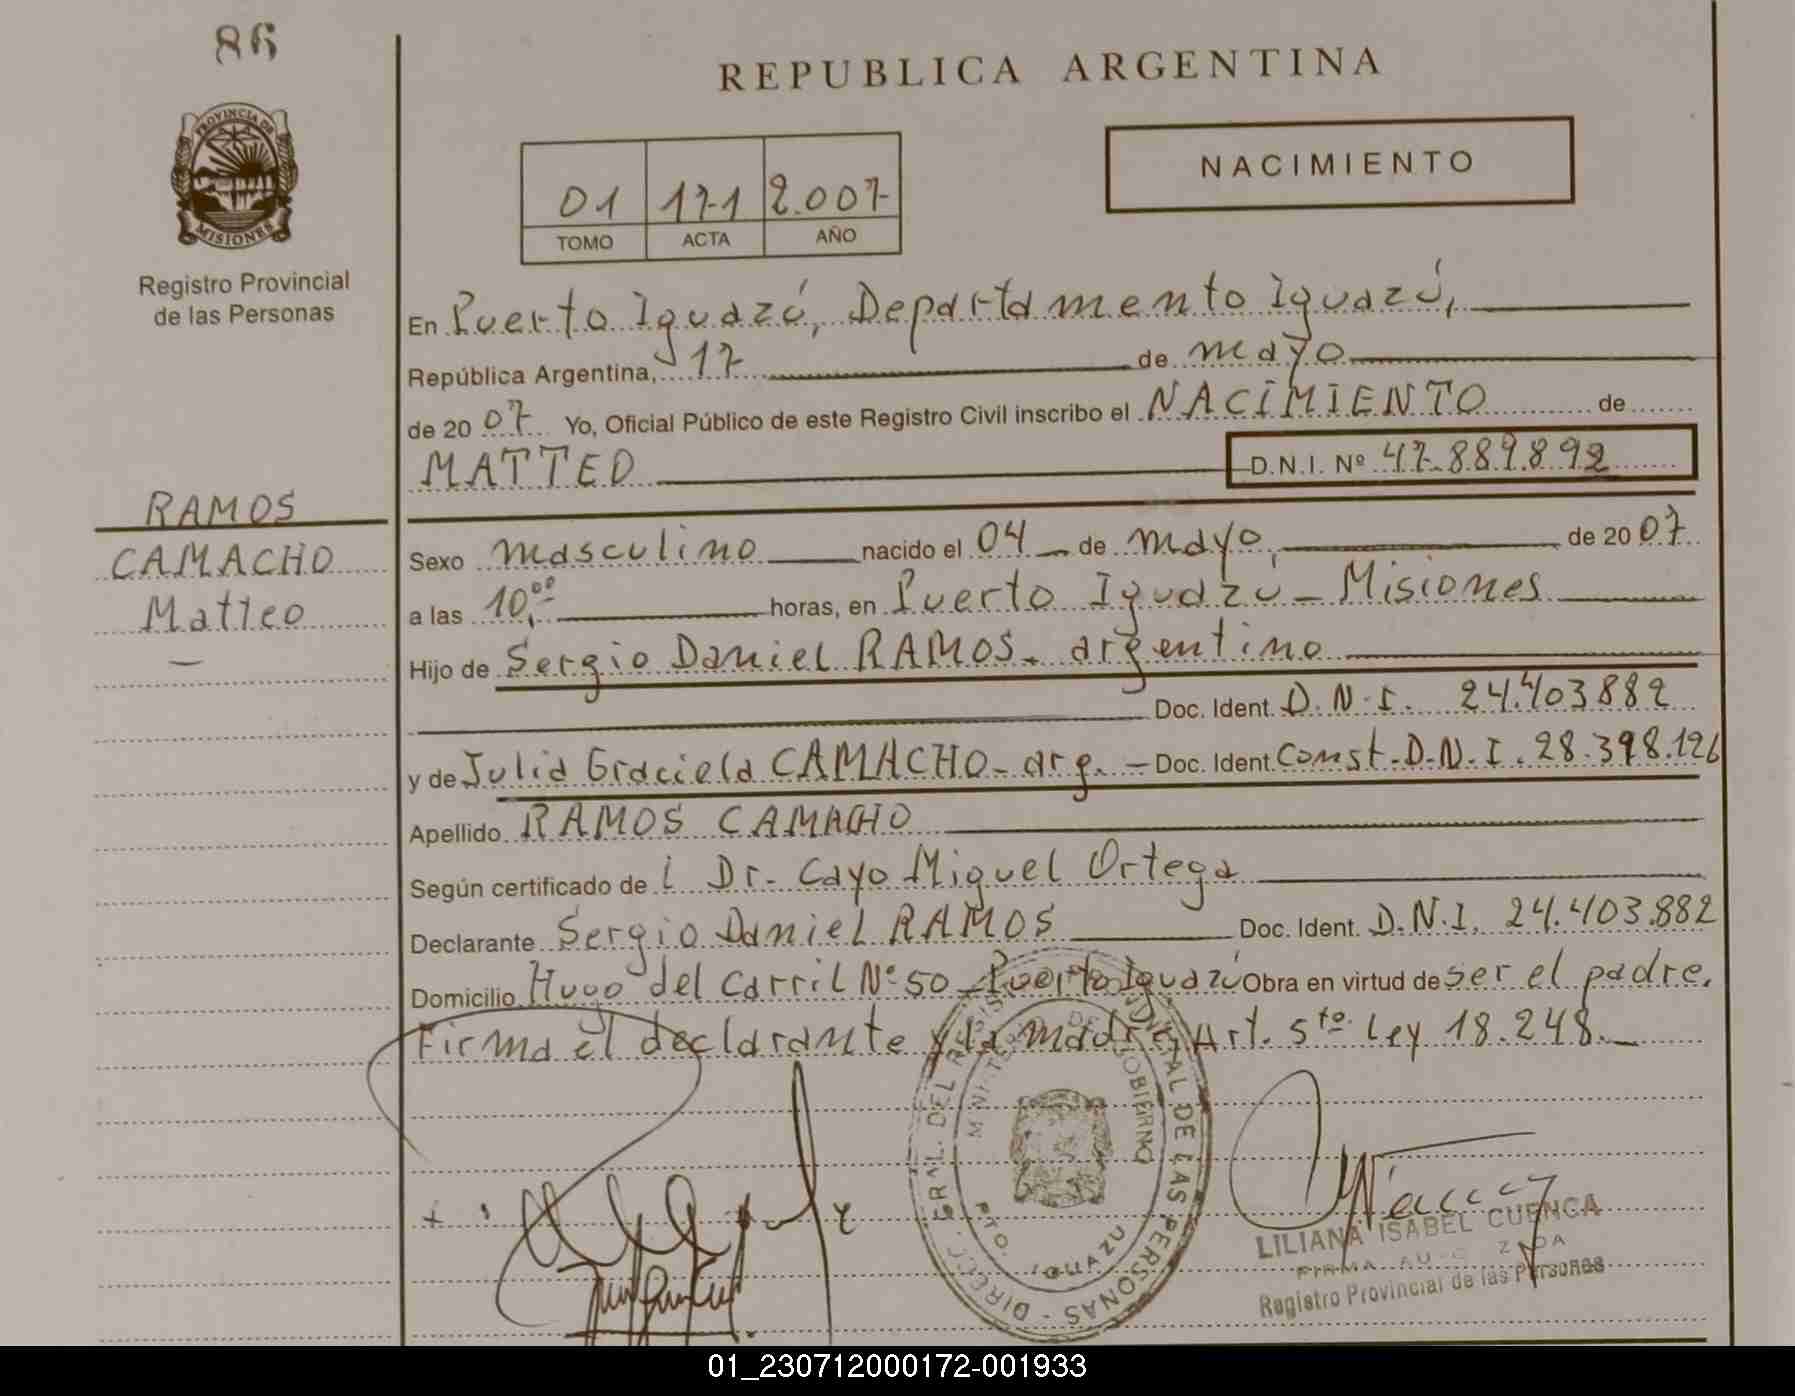 86
REPUBLICA ARGENTINA
PROVINCIA DE
MISIONES
Registro Provincial
de las Personas
01 171 2.007
TOMO ACTA AÑO
NACIMIENTO
En Puerto Iguazú, Departamento Iguazú,
República Argentina, 17 de mayo
de 2007 Yo, Oficial Público de este Registro Civil inscribo el NACIMIENTO de
MATTEO D.N.I. Nº 47.889.892
RAMOS
CAMACHO
Matteo
Sexo masculino nacido el 04 de mayo, de 2007
a las 10,00 horas, en Puerto Iguazú - Misiones
Hijo de Sergio Daniel RAMOS - argentino
Doc. Ident. D.N.I. 24.403882
y de Julia Graciela CAMACHO - arg. - Doc. Ident. Const. D.N.I. 28.398.126
Apellido RAMOS CAMACHO
Según certificado de l Dr. Cayo Miguel Ortega
Declarante Sergio Daniel RAMOS Doc. Ident. D.N.I. 24.403.882
Domicilio Hugo del Carril Nº 50 - Puerto Iguazú Obra en virtud de ser el padre.
Firma el declarante y la madre, Art. 5to. Ley 18.248.-
DIRECC. GRAL. DEL REGIST. PROVINCIAL DE LAS PERSONAS
MINISTERIO DE GOBIERNO
PTO. IGUAZU
LILIANA ISABEL CUENCA
FIRMA AUTORIZADA
Registro Provincial de las Personas
01_230712000172-001933